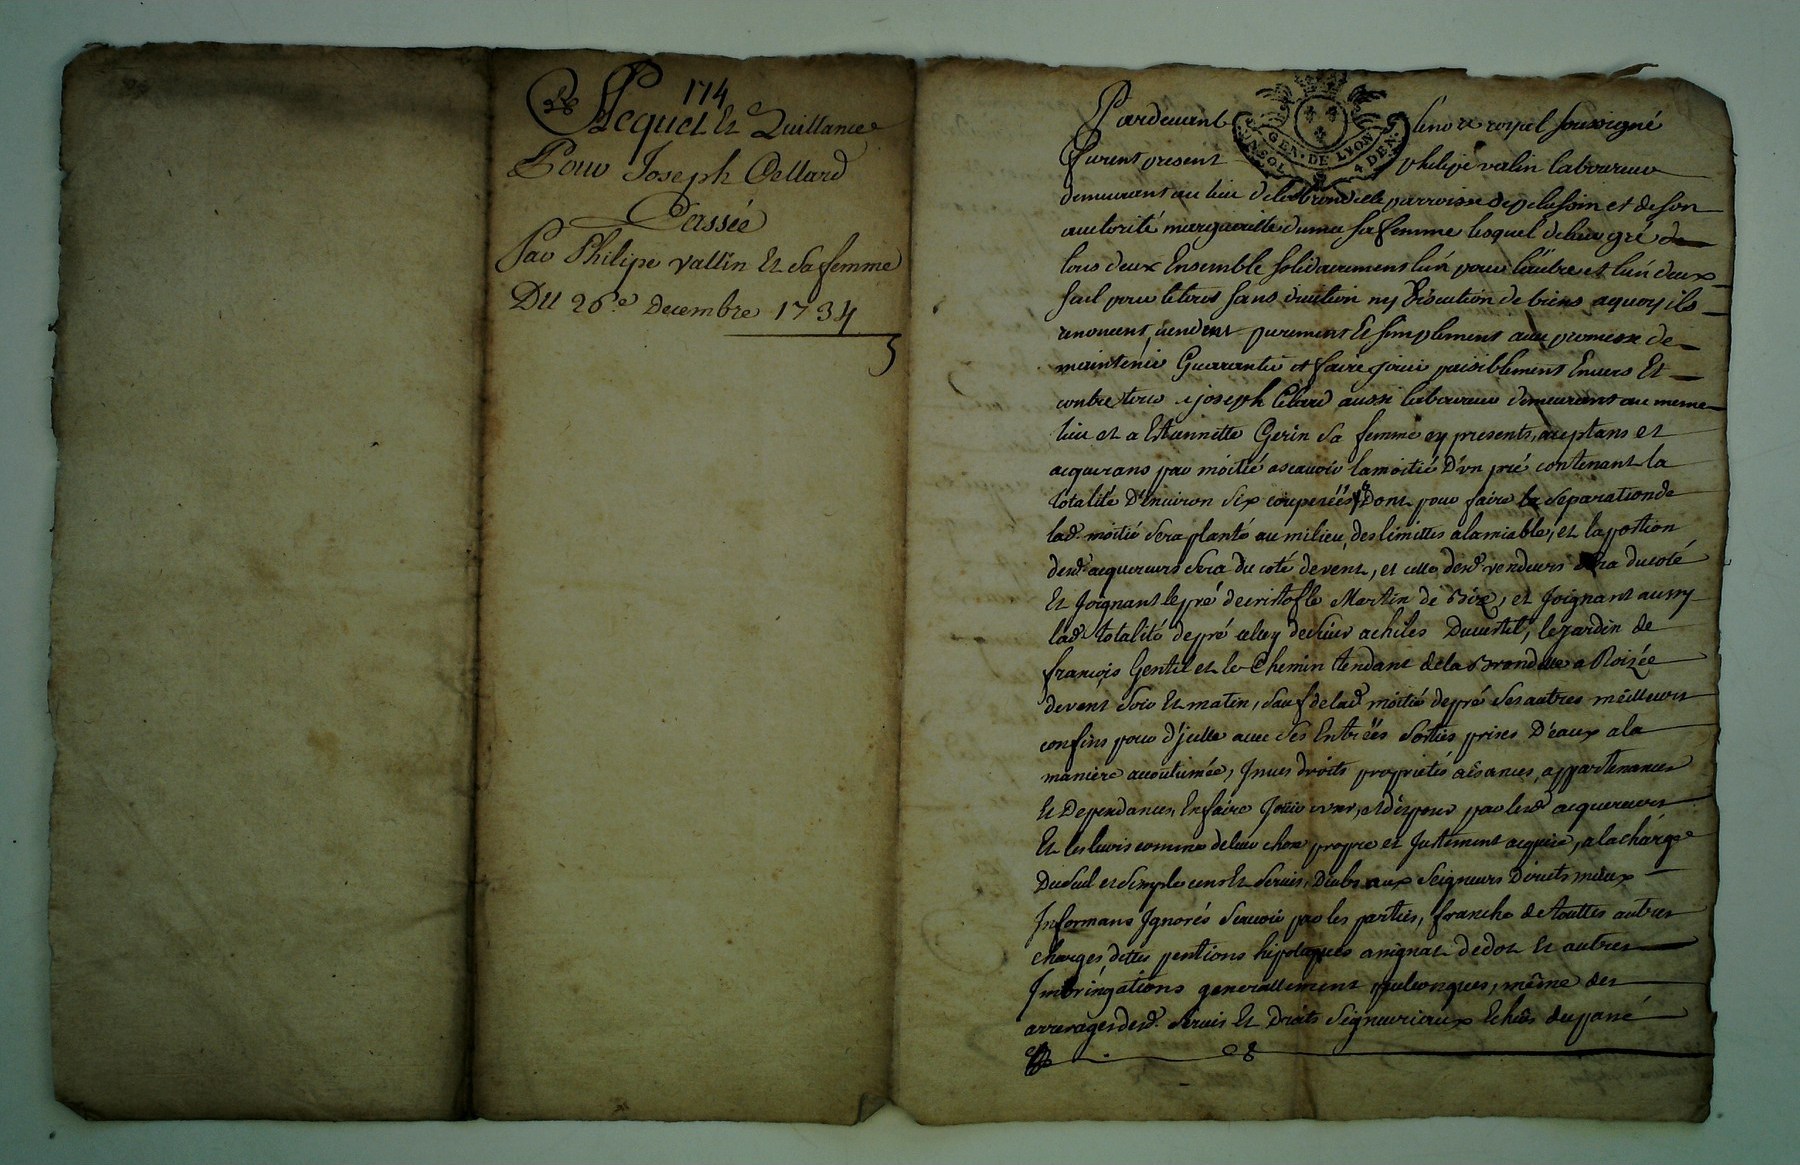 174
Acquet Et Quittance
Pour Joseph Cellard
Passée
Par Philipe Vallin Et Sa femme
DU 26e Decembre 1734
Pardevant Le no.re royal soussigné
GEN. DE LYON
furent present philipe valin laboureur
demeurant au lieu de la brondelle parroisse de pelussin et de son
auctorité margueritte duma sa femme lesquel de leur gré
tous deux Ensemble solidairement lun pour lautre et lun deux
seul pour le tous sans division ny discution de biens aquoy ils
renoncent, vendent purement Et simplement avec promesse de
maintenir Guarantir et faire jouir paisiblement Envers Et
contre tous a joseph Celard aussi laboureur demeurant au meme
lieu et a Estiennette Gerin Sa femme cy presents, aceptans et
acquerans par moitié ascavoir la moitié D'un pré contenant la
totalité D'environ six couperéés Dont pour faire la separation de
lad. moitié sera planté au milieu, des limittes alamiable, et la portion
desd. acquereurs sera du coté de vent, et celle desd. vendeurs sera du coté
Et Joignant le pré de cristofle Martin de Bize, et Joignant aussy
lad. totalité de pré celuy de sieur achiles Ducurtil, le jardin de
françois Gentil et le Chemin tendant de la Brondelle a Roizée
de vent soir Et matin, sauf de lad. moitié de pré ses autres meilleurs
confins pour d'jcelle avec ses Entréés sorties prises D'eaux a la
maniere acoutumée, jnues droits proprietés aisances, appartenances
Et Dependances, En faire Jouir user, et disposer par lesd. acquereurs
Et les leurs comme de leur chose propre et Justement acquise, a la charge
Du seul et simple cens Et servis, Deubs aux Seigneurs Directs mieux
Informans Ignorés scavoir par les parties, franche de touttes autres
charges dettes pentions hipoteques assignat de dot Et autres
Imbringations generallement quelconques, même des
arrerages desd. servis Et Droits Seigneuriaux Echus du passé